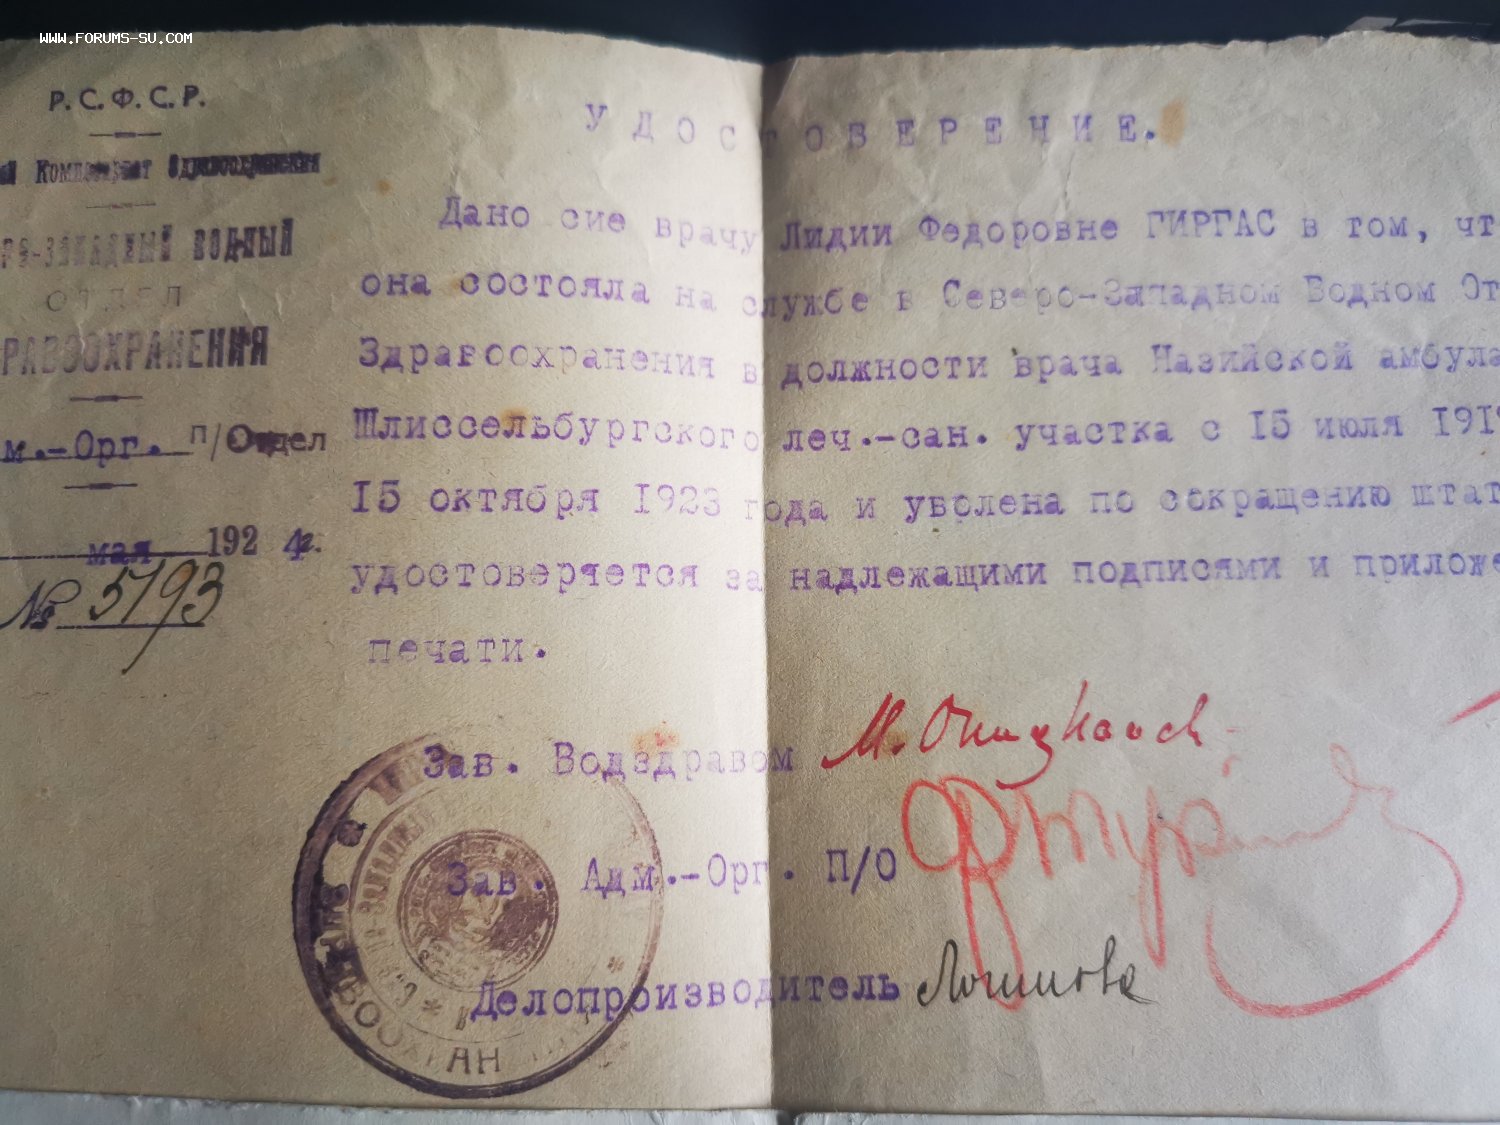 WWW.FORUMS-SU.COM
Р.С.Ф.С.Р.
й Комиссариат Здравоохранения
РО-ЗАПАДНЫЙ ВОДНЫЙ
ОТДЕЛ
РАВООХРАНЕНИЯ
м.-Орг. П/Отдел
мая 1924г.
№ 5193
УДОСТОВЕРЕНИЕ.
Дано сие врачу Лидии Федоровне ГИРГАС в том, чт
она состояла на службе в Северо-Западном Водном От
Здравоохранения в должности врача Назийской амбула
Шлиссельбургского леч.-сан. участка с 15 июля 191
15 октября 1923 года и уволена по сокращению штат
удостоверяется за надлежащими подписями и приложе
печати.
Зав. Водздравом
Зав. Адм.-Орг. П/О
Делопроизводитель